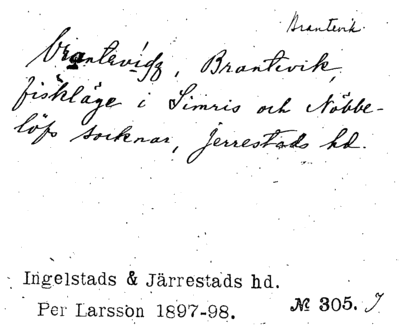 Brantevik.
Brantevigz, Brantevik,
fiskläge i Simris och Nöbbe-
löfs socknar, Jerrestads hd.
Ingelstads & Järrestads hd.
Per Larsson 1897-98. № 305. J